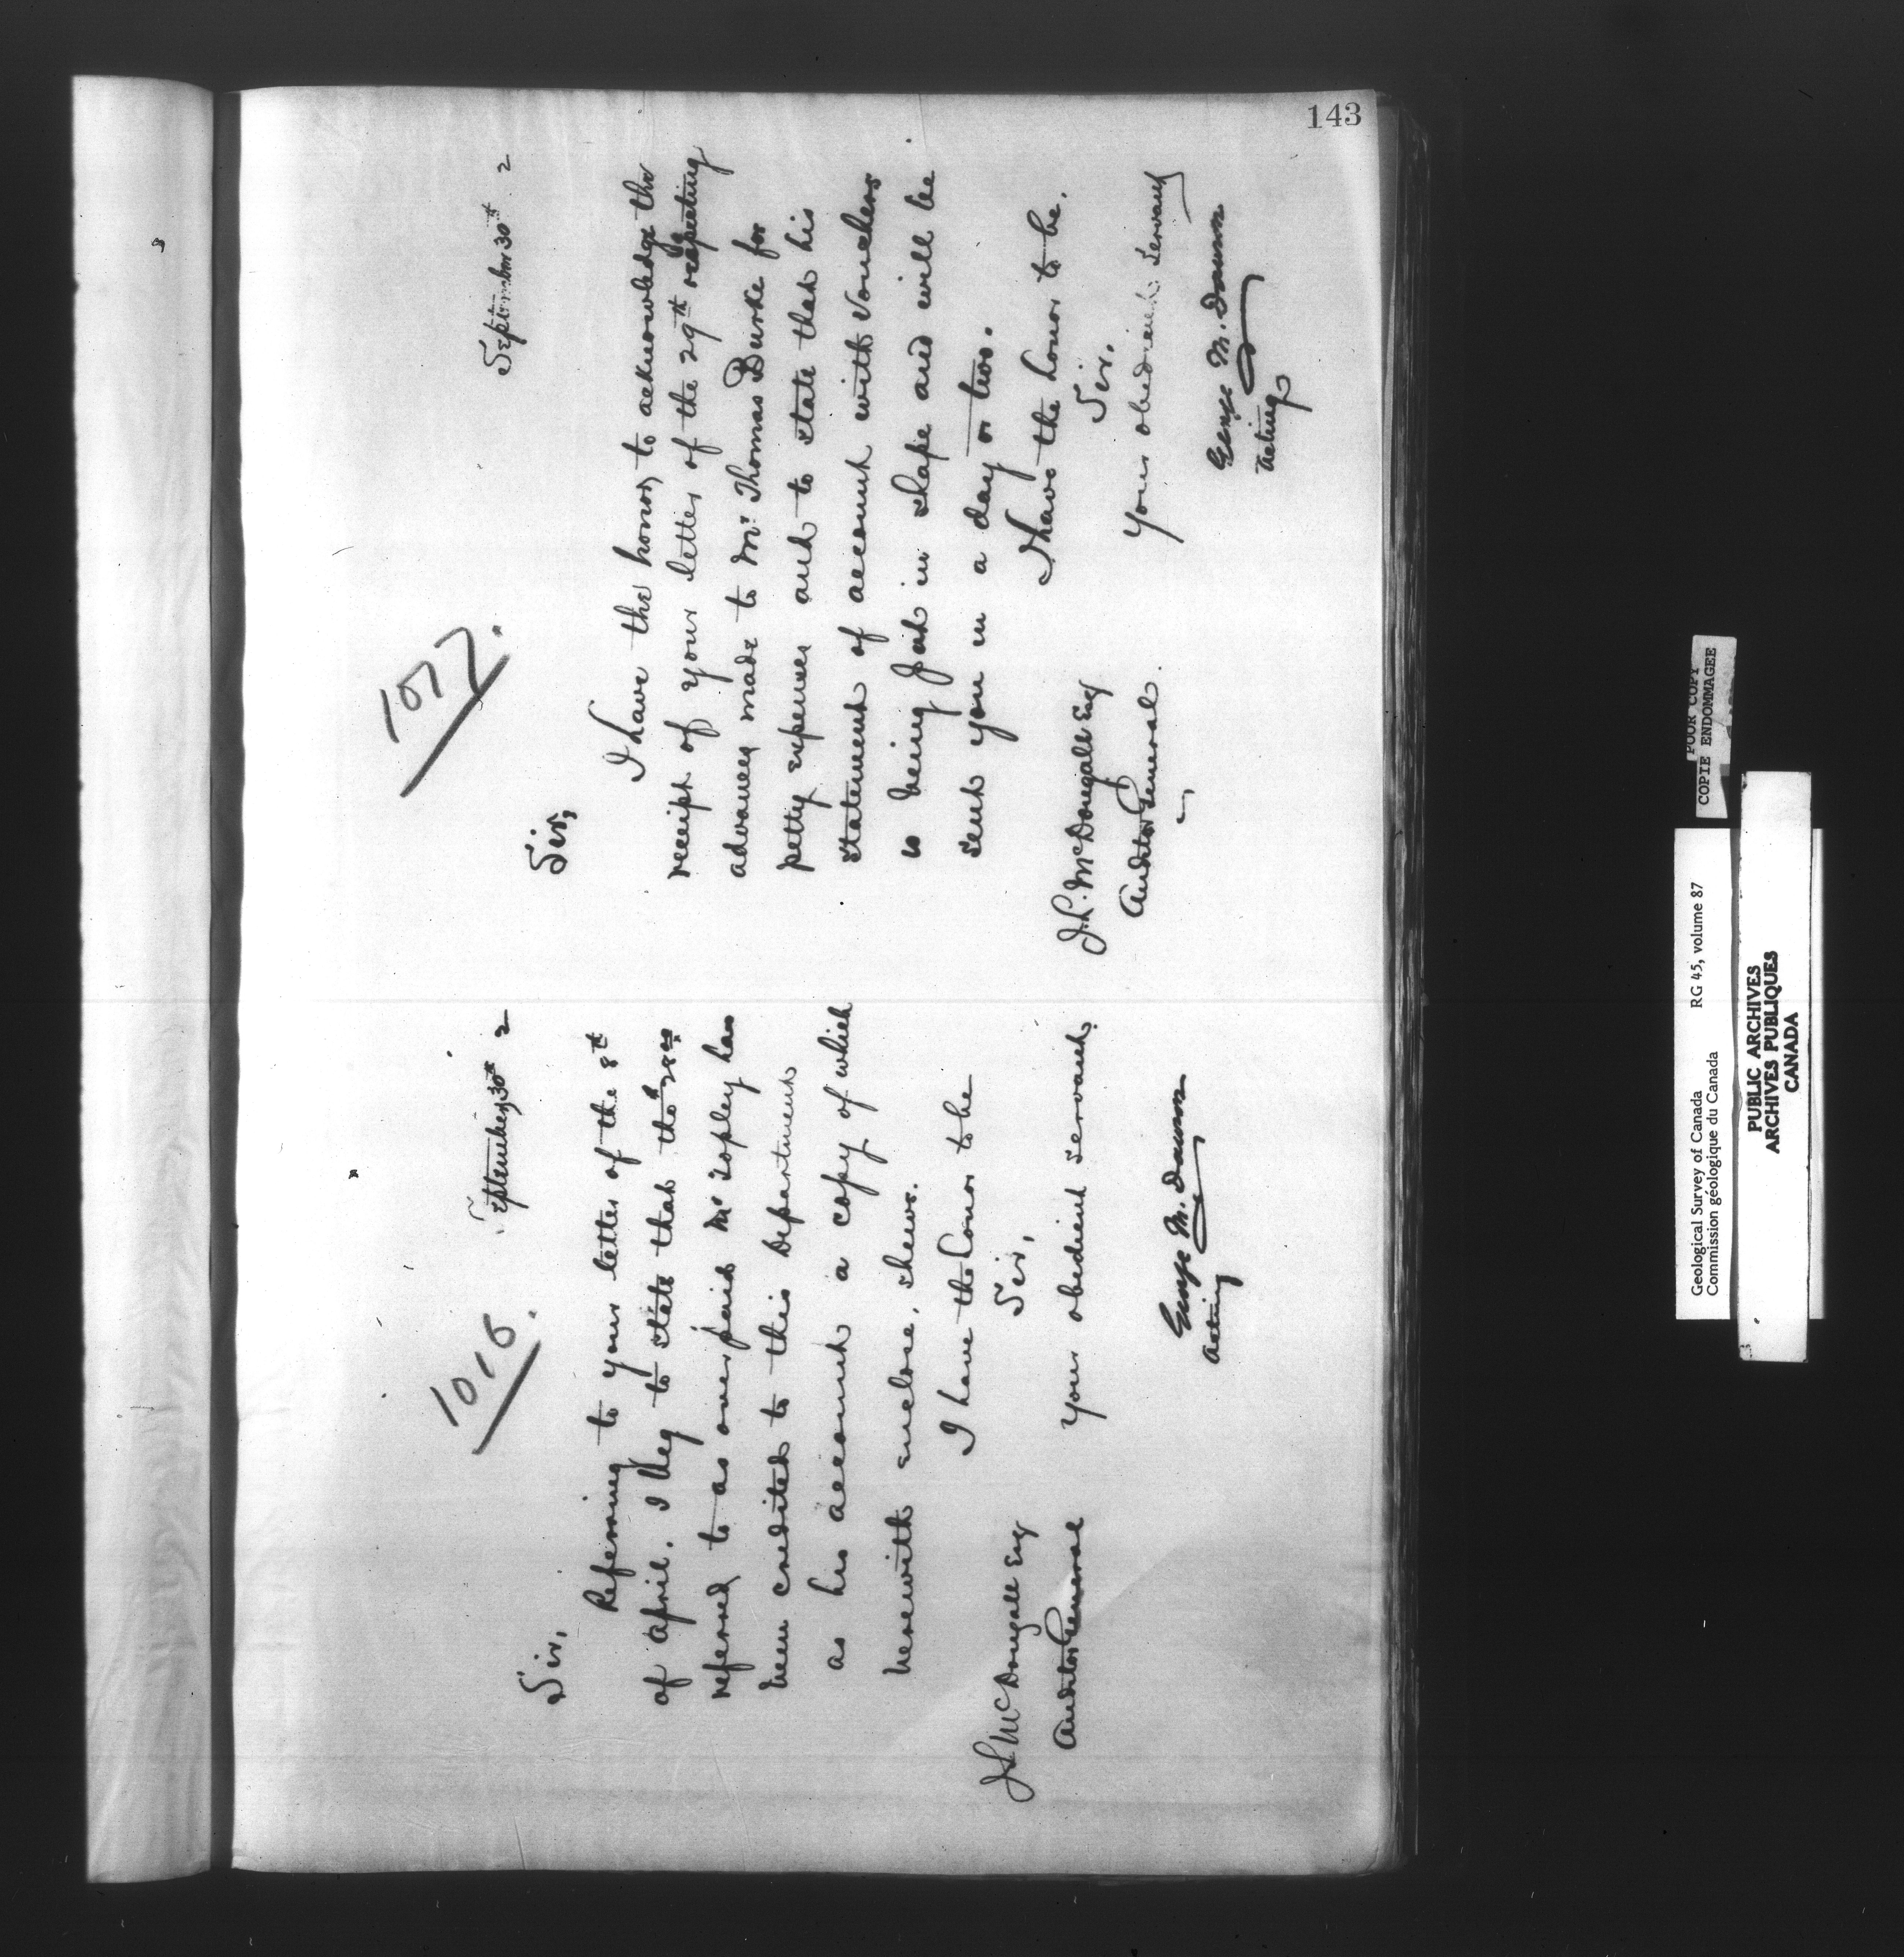 143
1016.
September 30th 2
Sir,
Referring to your letter of the 8th
of April. I beg to state that the
referred to as over paid Mr Topley has
been credited to this Department
as his account a copy of which
herewith enclose, shews.
I have the honor to be
Sir,
your obedient servant.
George M. Dawson
Acting
J L McDougall Esq
Auditor General
1077.
September 30th 2
Sir,
I have the honor, to acknowledge the
receipt of your letter of the 29th respecting
advances made to Mr. Thomas Burke for
petty expenses and to state that his
statement of account with Vouchers
is being put in shape and will be
sent you in a day or two.
I have the honor to be.
Sir.
Your obedient Servant
George M. Dawson
Acting
J. L. McDougall Esq
Auditor General.
POOR COPY
COPIE ENDOMMAGEE
Geological Survey of Canada RG 45, volume 87
Commission géologique du Canada
PUBLIC ARCHIVES
ARCHIVES PUBLIQUES
CANADA